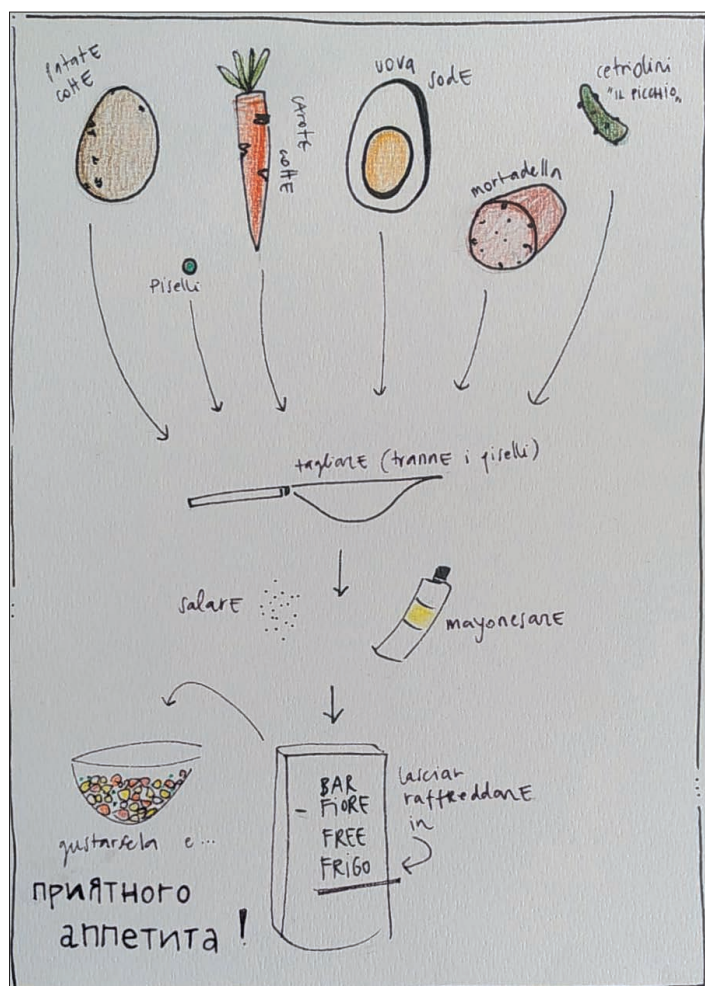 patatE
cottE
carotE
cottE
uova
sodE
cetriolini
"IL PICCHIO"
mortadella
Piselli
tagliarE (trannE i piselli)
salarE
mayonesarE
BAR
FIORE
FREE
FRIGO
lasciar
raffreddarE
in
gustarsela e...
приятного
аппетита!